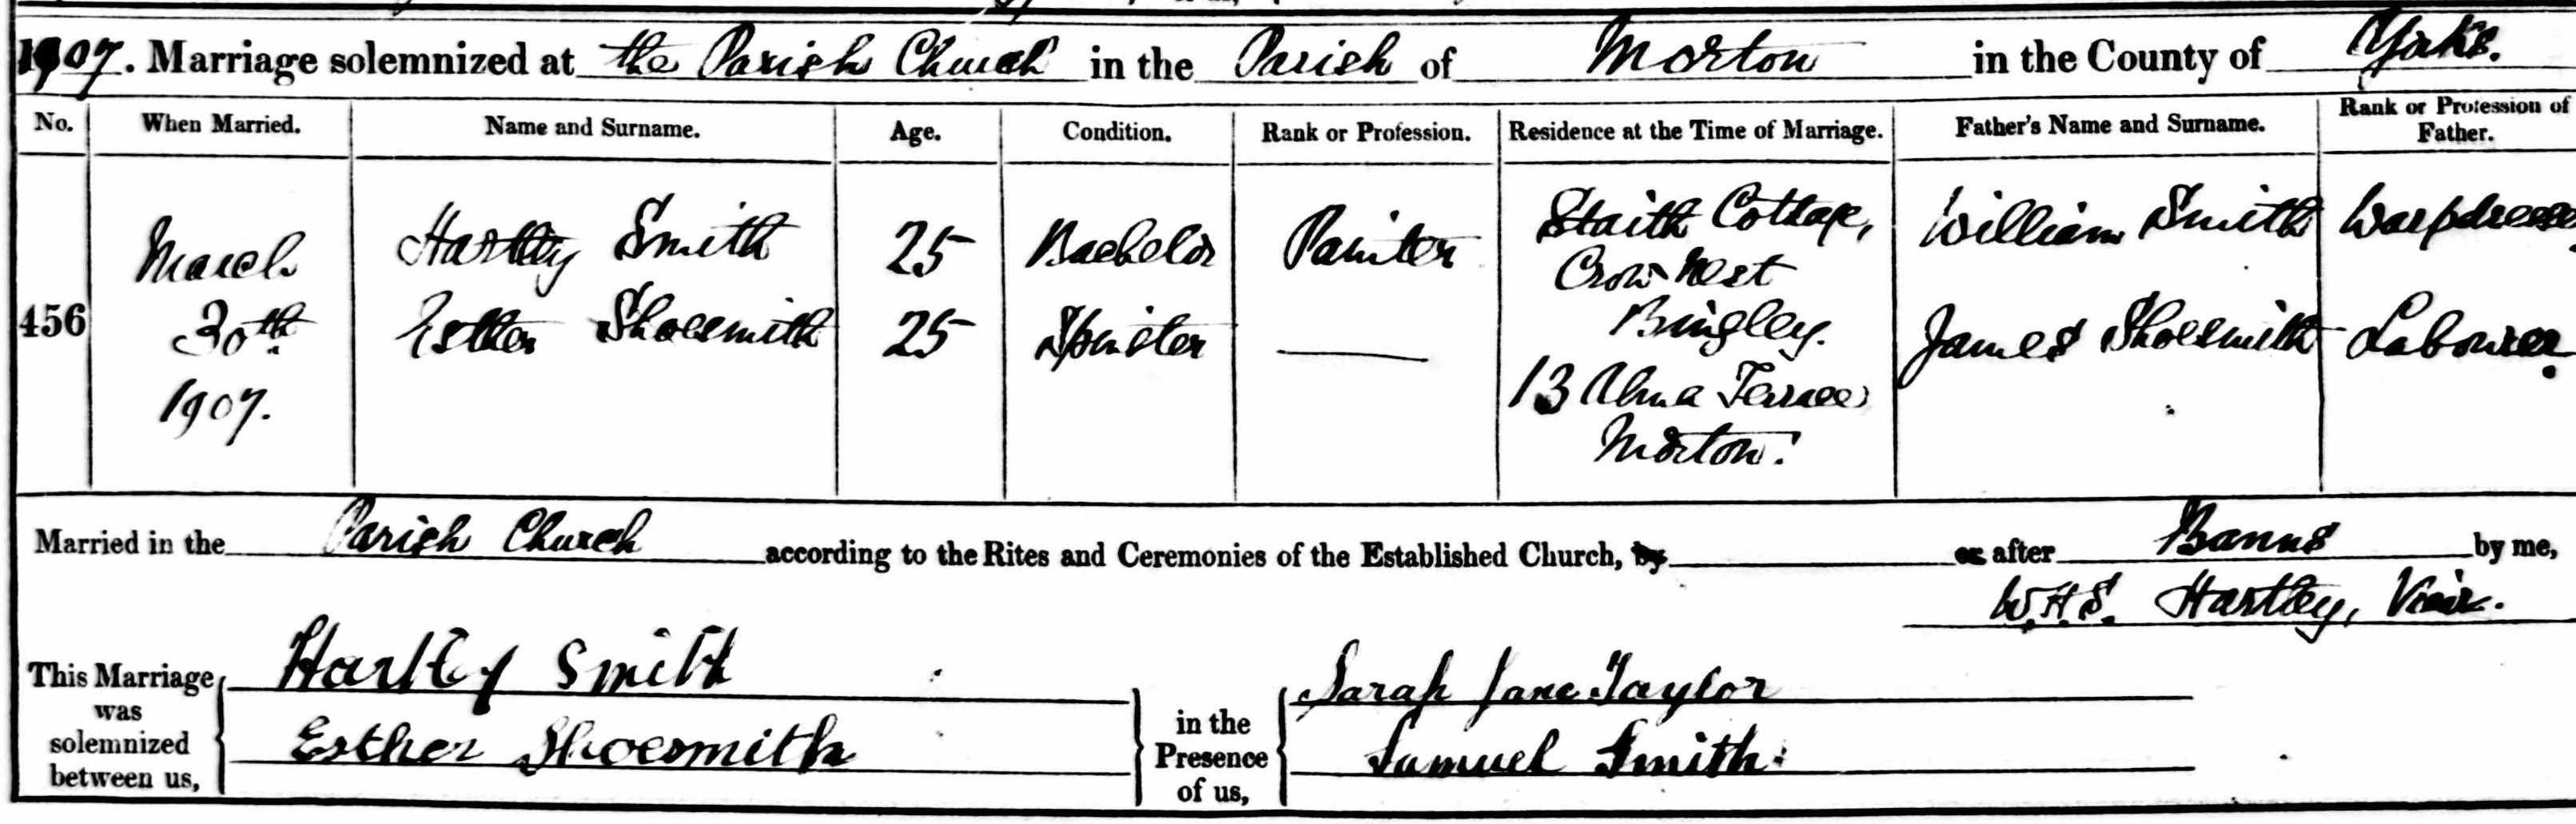 1907. Marriage solemnized at the Parish Church in the Parish of Morton in the County of Yorks.
No. When Married. Name and Surname. Age. Condition. Rank or Profession. Residence at the Time of Marriage. Father's Name and Surname. Rank or Profession of Father.
456 March 30th 1907.
Hartley Smith 25 Bachelor Painter Staith Cottage, Crow Nest Bingley. William Smith Warpdresser
Esther Shoesmith 25 Spinster — 13 Alma Terrace Morton. James Shoesmith Labourer
Married in the Parish Church according to the Rites and Ceremonies of the Established Church, by or after Banns by me,
W.H.S. Hartley, Vicar.
This Marriage was solemnized between us,
Hartley Smith
Esther Shoesmith
in the Presence of us,
Sarah Jane Taylor
Samuel Smith